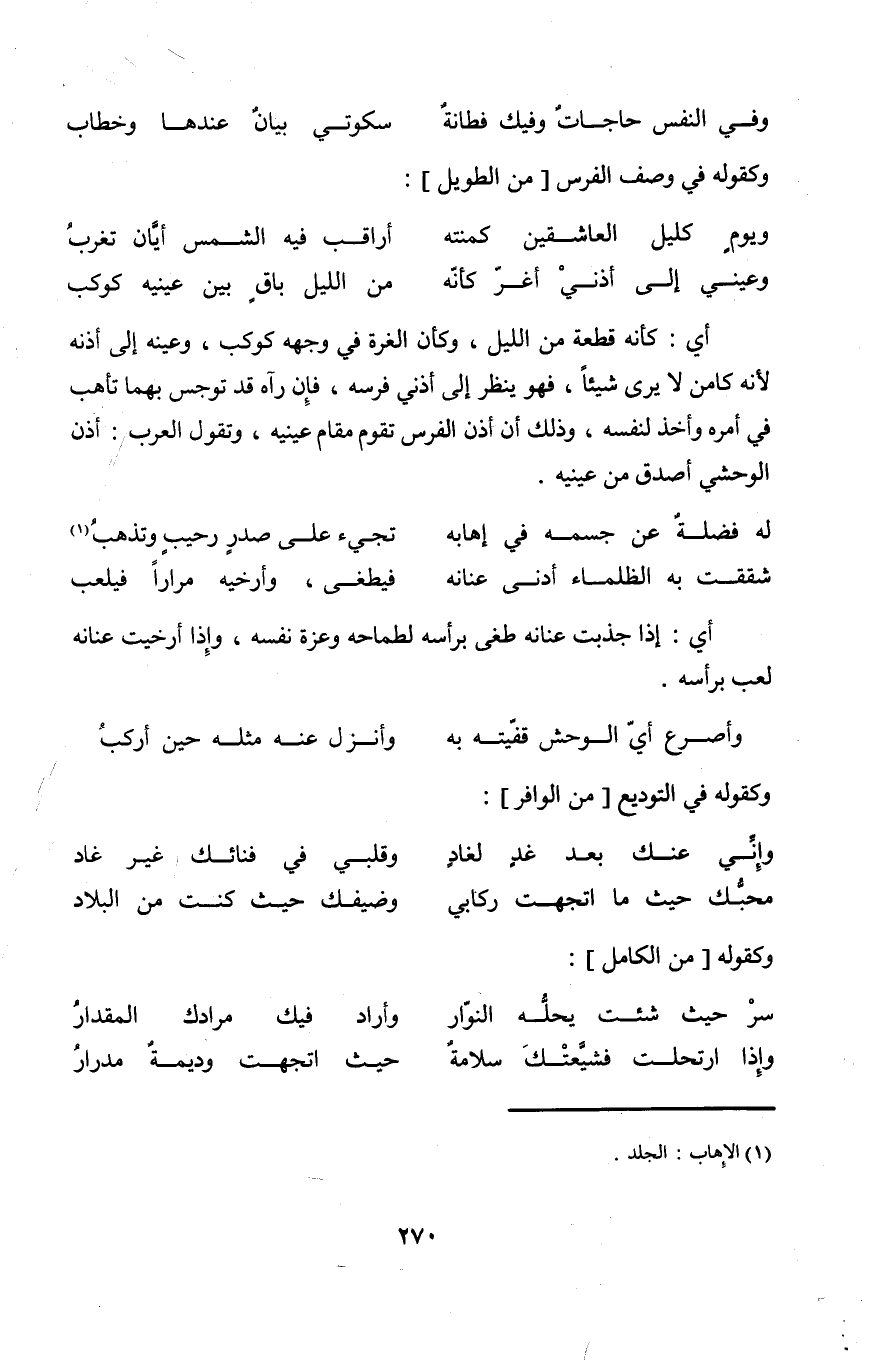 وفي النفس حاجاتٌ وفيك فطانةٌ سكوتي بيانٌ عندها وخطاب
وكقوله في وصف الفرس [ من الطويل ] :
ويومٍ كليل العاشقين كمنته أراقب فيه الشمس أيَّان تغربُ
وعيني إلى أذنيْ أغرّ كأنّه من الليل باقٍ بين عينيه كوكب
أي : كأنه قطعة من الليل ، وكأن الغرة في وجهه كوكب ، وعينه إلى أذنه
لأنه كامن لا يرى شيئاً ، فهو ينظر إلى أذني فرسه ، فإن رآه قد توجس بهما تأهب
في أمره وأخذ لنفسه ، وذلك أن أذن الفرس تقوم مقام عينيه ، وتقول العرب : أذن
الوحشي أصدق من عينيه .
له فضلةٌ عن جسمه في إهابه تجيء على صدرٍ رحيبٍ وتذهبُ(١)
شققت به الظلماء أدنى عنانه فيطغى ، وأرخيه مراراً فيلعب
أي : إذا جذبت عنانه طغى برأسه لطماحه وعزة نفسه ، وإذا أرخيت عنانه
لعب برأسه .
وأصرع أيّ الوحش قفّيته به وأنزل عنه مثله حين أركبُ
وكقوله في التوديع [ من الوافر ] :
وإنَّي عنك بعد غدٍ لغادٍ وقلبي في فنائك غير غاد
محبُّك حيث ما اتجهت ركابي وضيفك حيث كنت من البلاد
وكقوله [ من الكامل ] :
سرْ حيث شئت يحلُّه النوّار وأراد فيك مرادك المقدارُ
وإذا ارتحلت فشيَّعتْكَ سلامةٌ حيث اتجهت وديمةٌ مدرارُ
(١) الإهاب : الجلد .
٢٧٠